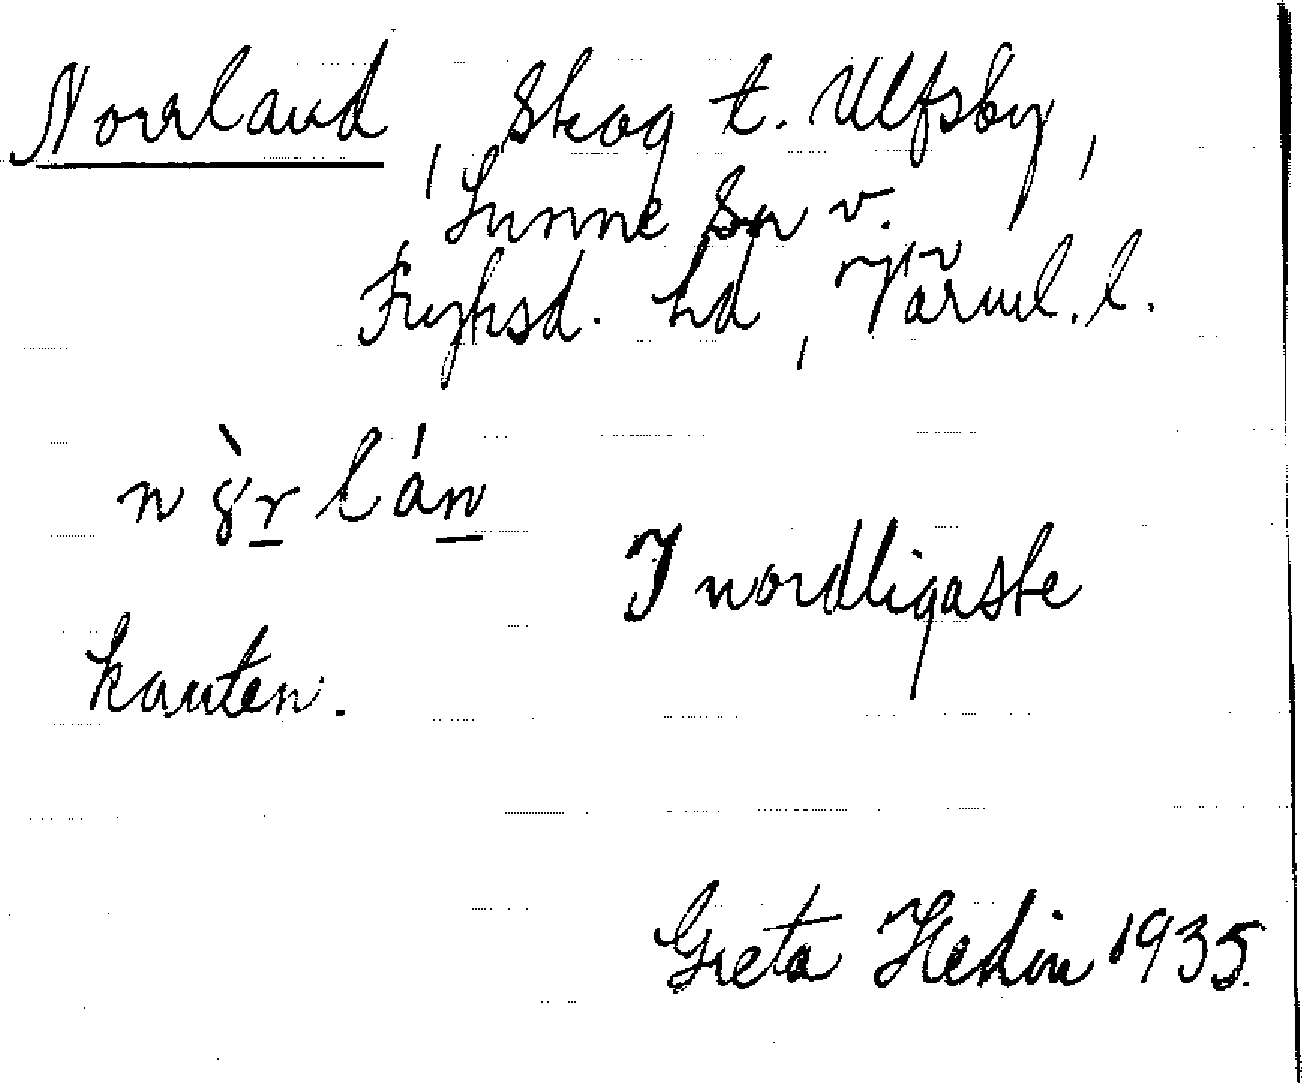 Norrland, Skog t. Ulfsby,
Sunne Sn v.
Fryksd. hd, Värml. l.
n ȣ̀r lán
I nordligaste
kanten.
Greta Hedin 1935.